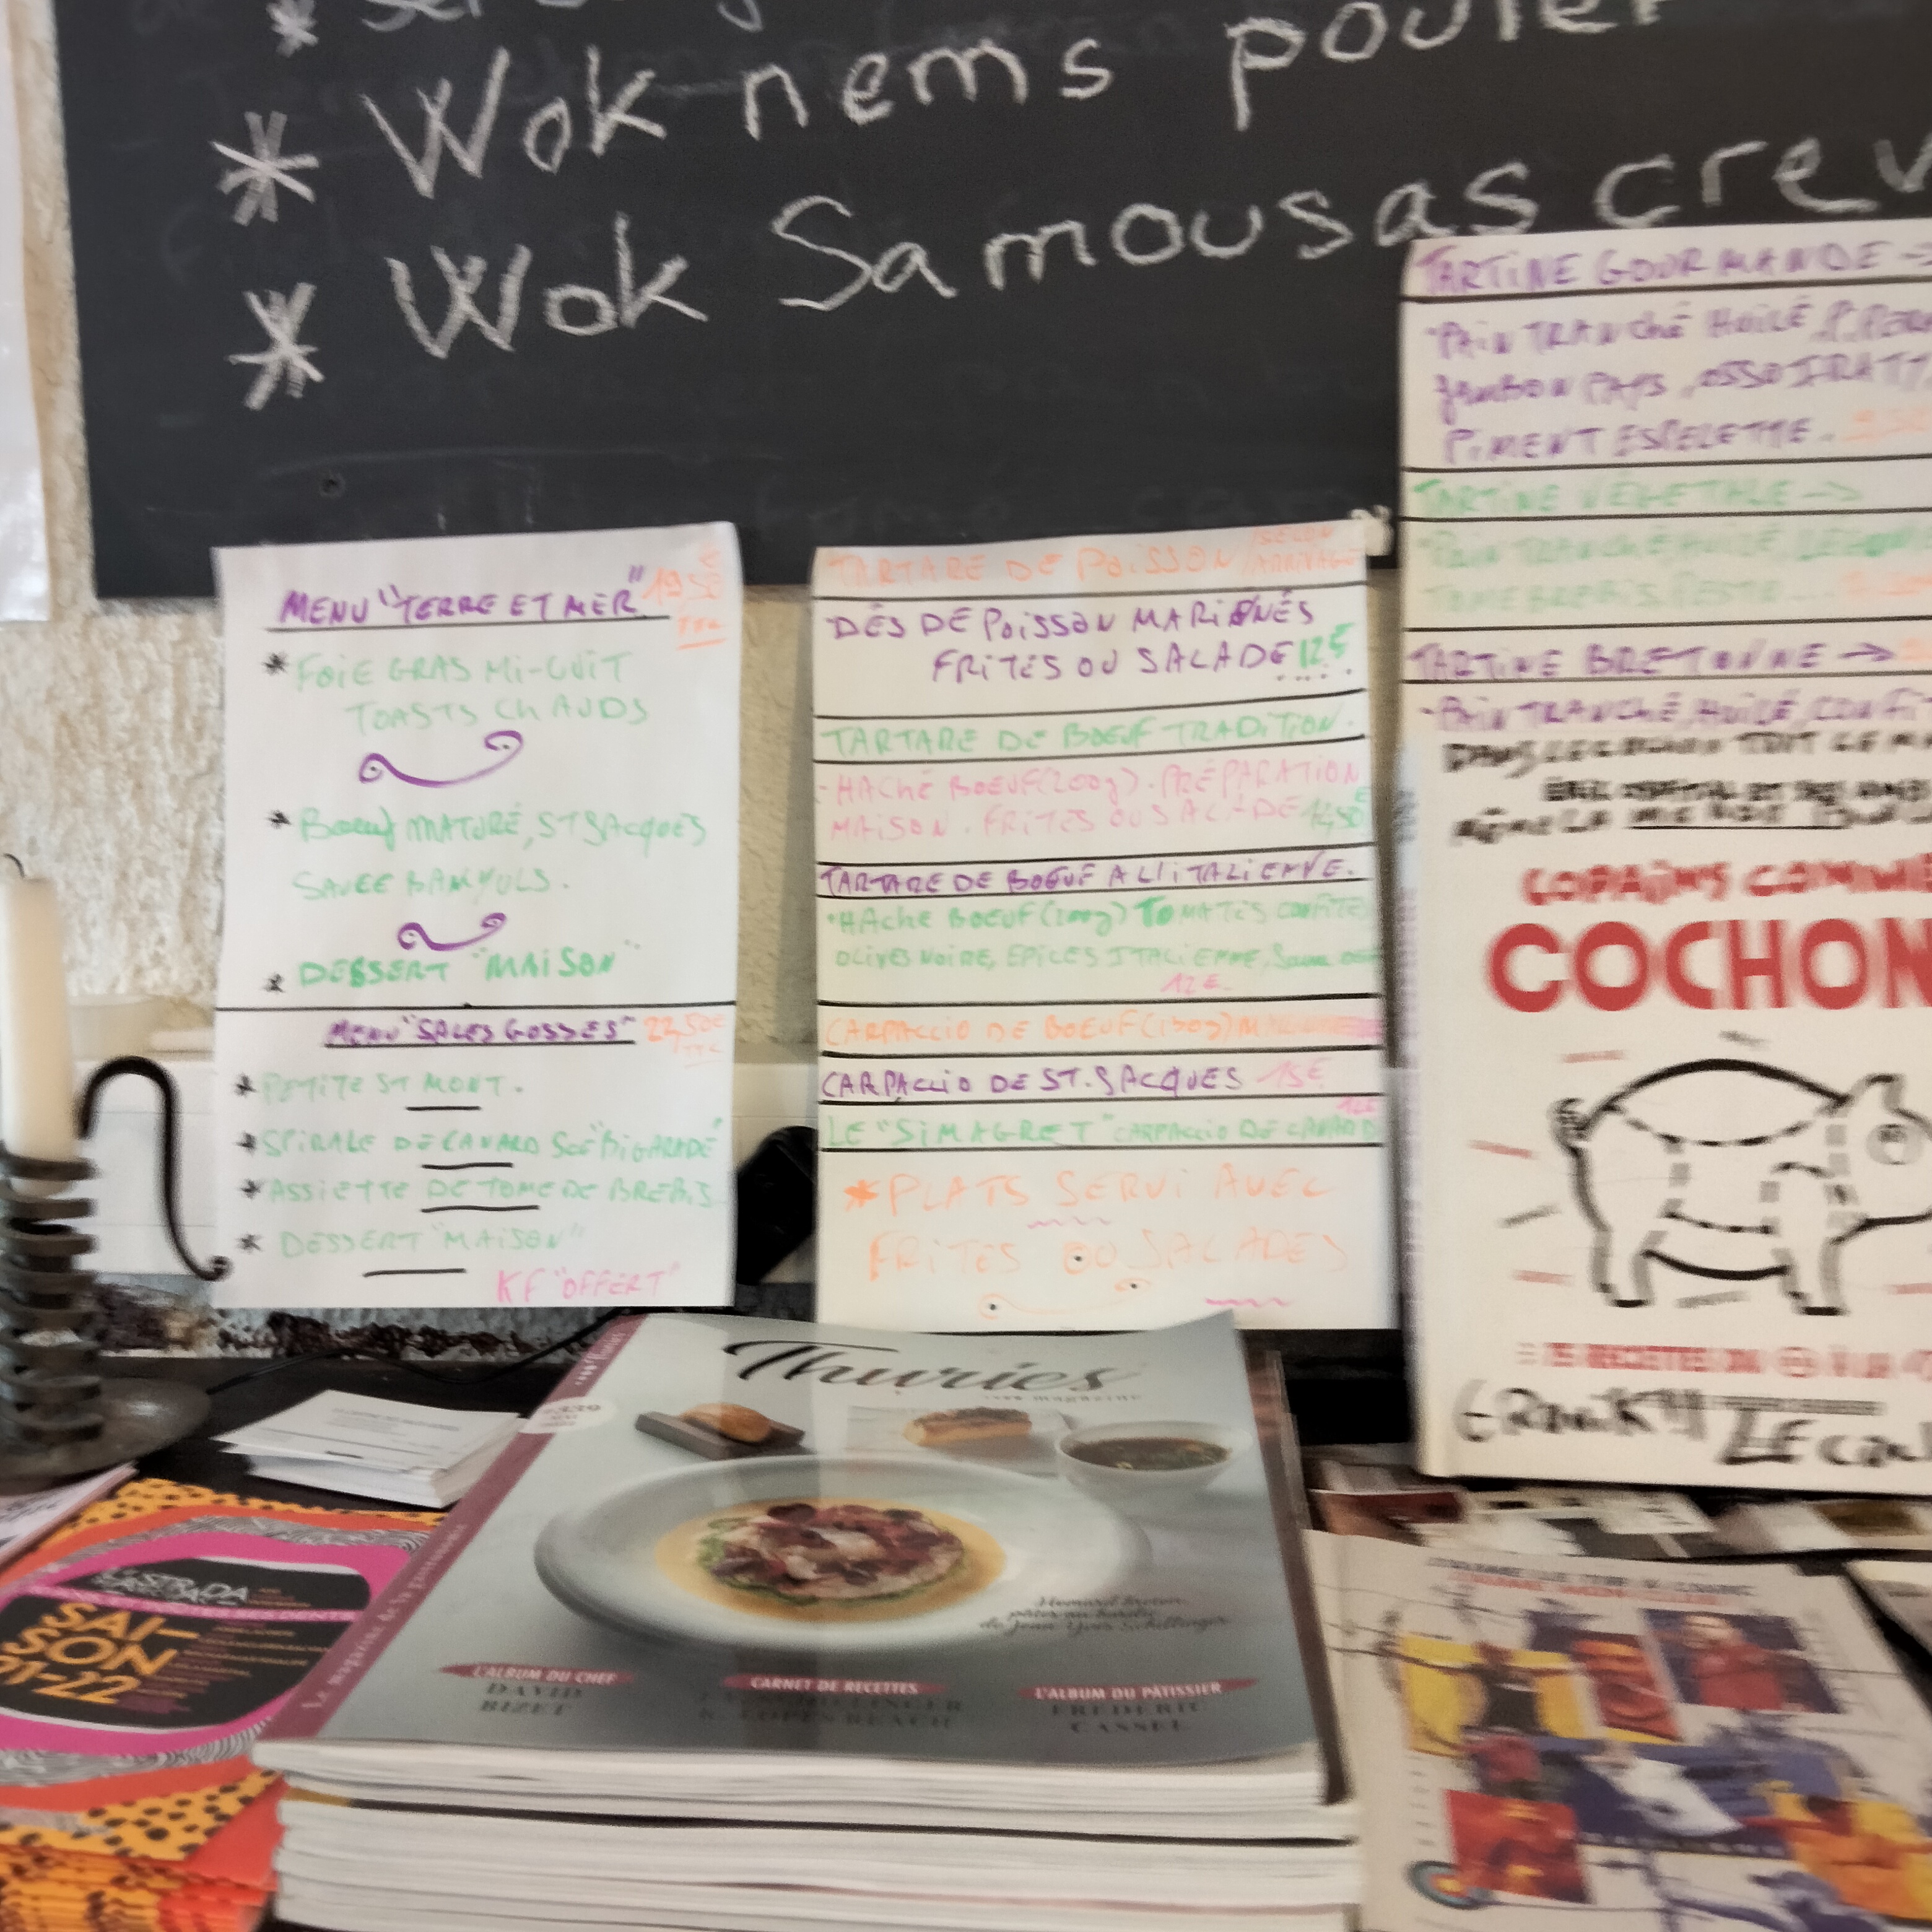 * Wok nems poulet
* Wok Samousas crev
MENU "TERRE ET MER" 19,50 €
TTC
* FOIE GRAS Mi-CUIT
TOASTS CHAUDS
* Boeuf MATURÉ, ST JACQUES
SAUCE BANYULS.
* DESSERT "MAiSON"
MENU "SALES GOSSES" 22,50€
TTC
* PETITE ST MONT.
* SPIRALE DE CANARD SCE "BIGARADE"
* ASSIETTE DE TOME DE BREBIS
* DESSERT "MAISON"
KF "OFFERT"
TARTARE DE POISSON /SELON ARRIVAGE
DÉS DE POISSON MARINÉS
FRITES OU SALADE 12€
TARTARE DE BOEUF TRADITION.
- HACHÉ BOEUF (200g). PRÉPARATION
MAISON. FRITES OU SALADE 14,50€
TARTARE DE BOEUF A L'ITALIENNE.
*HACHE BOEUF (200g) TOMATES CONFITES
OLIVES NOIRE, EPICES ITALIENNE,
12€
CARPACCIO DE BOEUF (150g)
CARPACCIO DE ST. JACQUES 15€
12€
LE "SIMAGRET" CARPACCIO DE CANARD
* PLATS SERVI AVEC
FRITES OU SALADES
TARTINE GOURMANDE →
- PAIN TRANCHÉ HUILÉ,
JAMBON PAYS, OSSO IRATY,
PIMENT ESPELETTE.
TARTINE VÉGETALE →
PAIN TRANCHÉ, HUILÉ,
TOME BREBIS, PESTO....
TARTINE BRETONNE →
- PAIN TRANCHÉ, HUILÉ, CONFI
DANS LE COCHON TOUT EST
COPAINS COMME
COCHON
75 RECETTES DU
Thuriès
magazine
339
Le magazine de la gourmandise
Homard breton,
de Jean-Yves Schillinger
L'ALBUM DU CHEF
DAVID
BIZET
CARNET DE RECETTES
J.-Y. SCHILLINGER
L'ALBUM DU PÂTISSIER
FRÉDÉRIC
CASSEL
LA STRADA
SAI-
SON
21-22